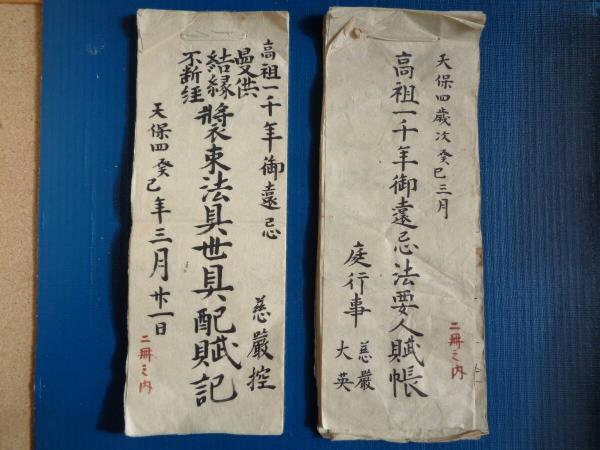 天保四歳次癸巳三月
高祖一千年御遠忌法要人賦帳
庭行事
慈嚴
大英
二冊之内
高祖一千年御遠忌
曼供
結縁
不断経
裝束法具世具配賦記
慈嚴控
天保四癸巳年三月廿一日
二冊之内